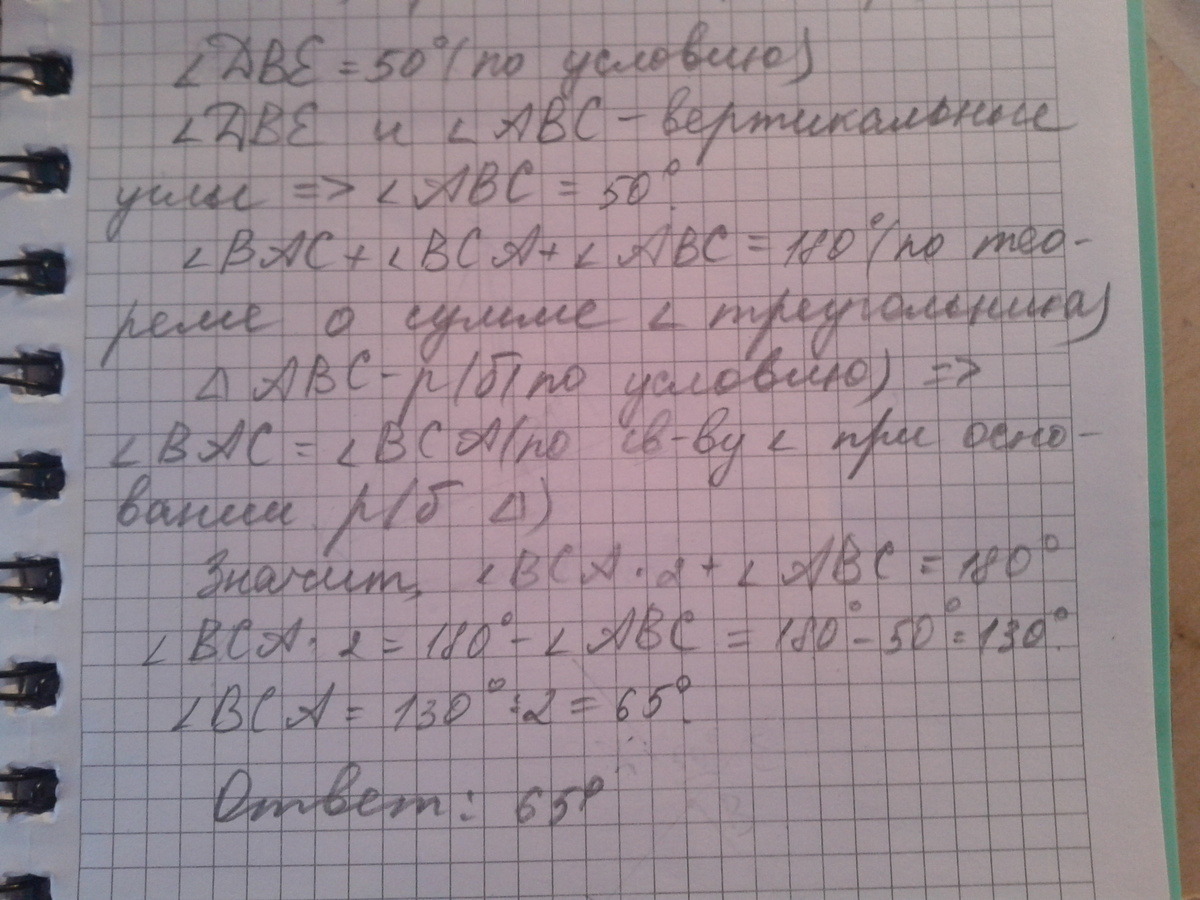 ∠DBE = 50° (по условию)
∠DBE и ∠ABC – вертикальные
углы => ∠ABC = 50°.
∠BAC + ∠BCA + ∠ABC = 180° (по тео-
реме о сумме ∠ треугольника)
△ABC – р/б (по условию) =>
∠BAC = ∠BCA (по св-ву ∠ при осно-
вании р/б △)
Значит, ∠BCA · 2 + ∠ABC = 180°
∠BCA · 2 = 180° – ∠ABC = 180° – 50° = 130°.
∠BCA = 130° : 2 = 65°.
Ответ: 65°